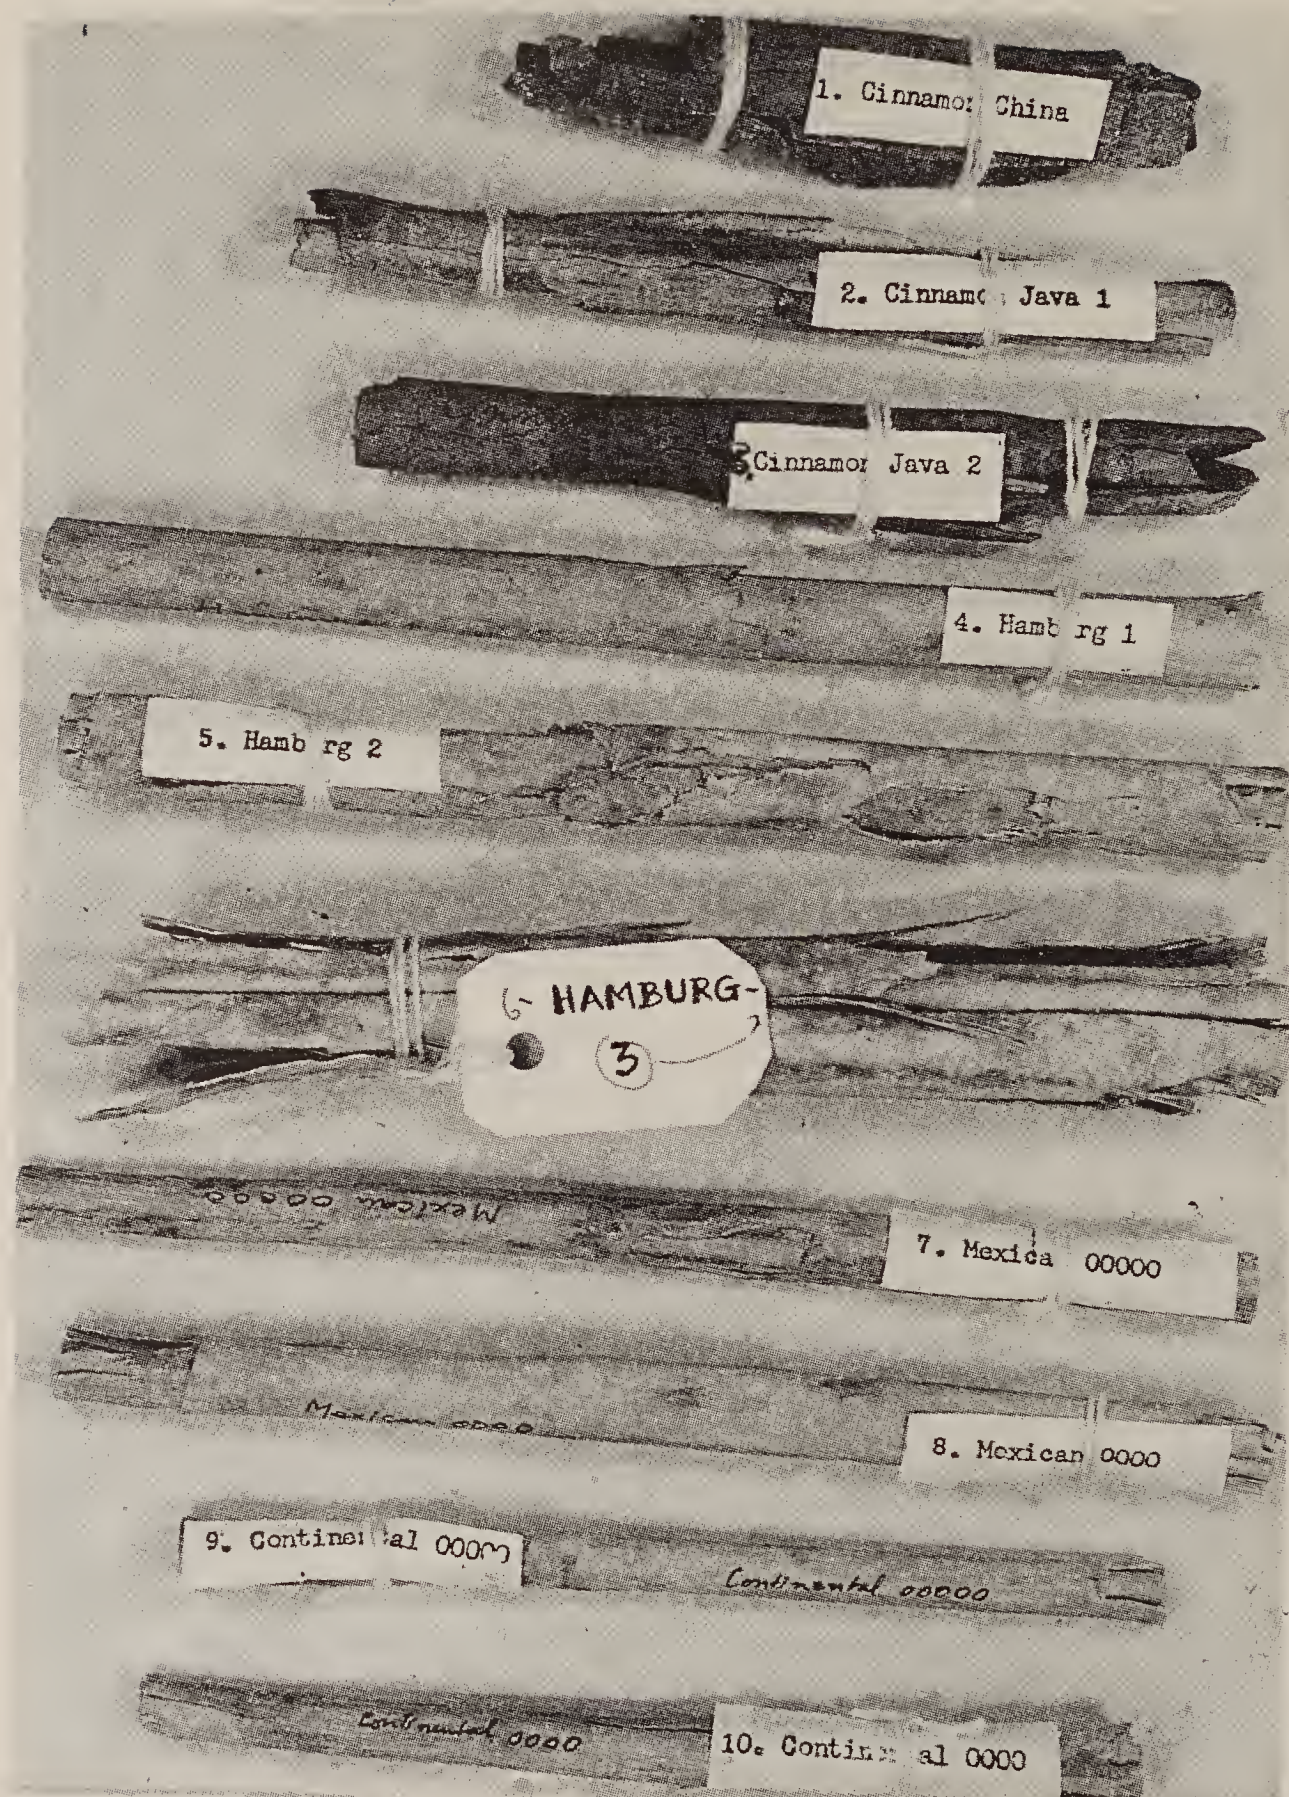 1. Cinnamon China
2. Cinnamon Java 1
3. Cinnamon Java 2
4. Hamburg 1
5. Hamburg 2
6- HAMBURG-
3
Mexican 00000
7. Mexica 00000
Mexican 0000
8. Mexican 0000
9. Continental 00000
Continental 00000
Continental 0000
10. Continental 0000